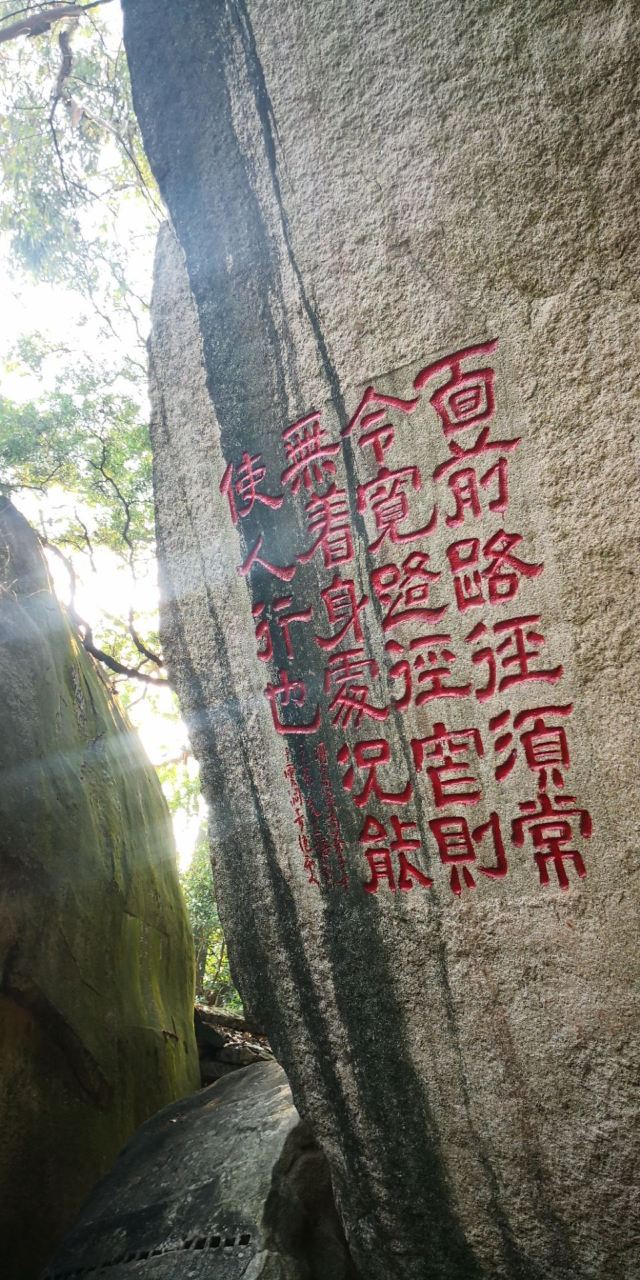 面前路径須常
令寛路径窄則
無着身處况能
使人行也